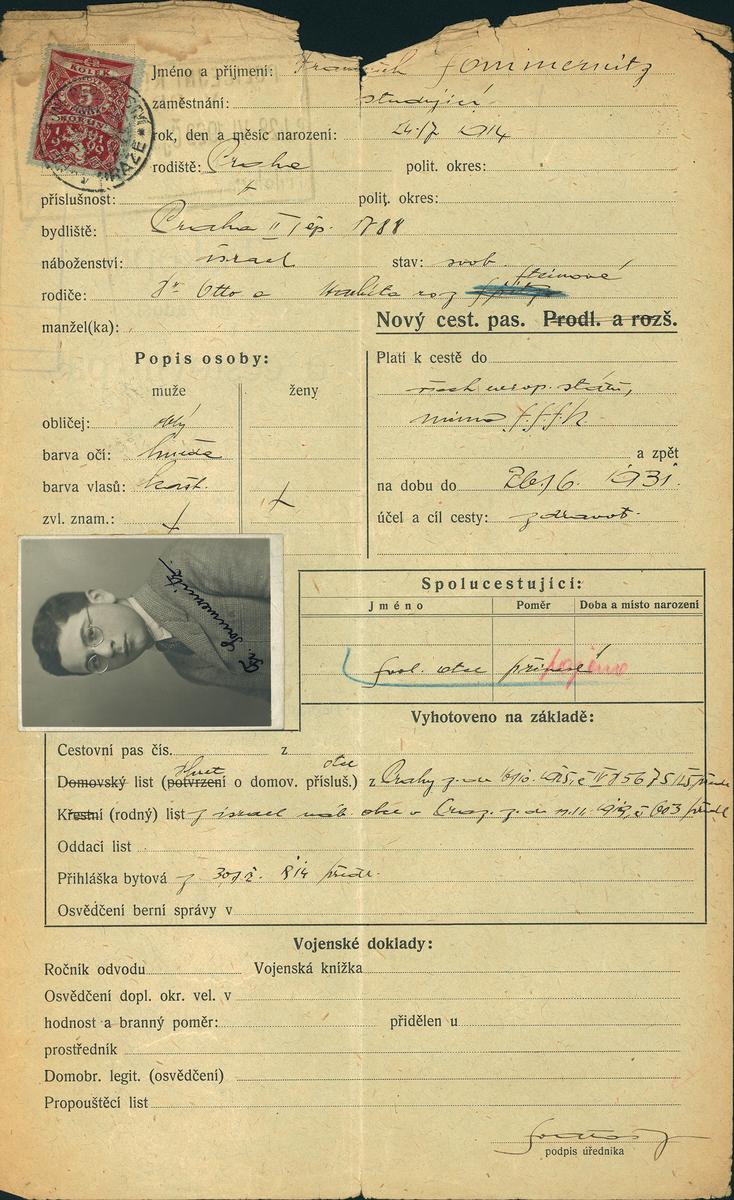 KOLEK
5
KORUN
PRAZE
Jméno a příjmení: Sommernitz
zaměstnání: studující
rok, den a měsíc narození: 1914
rodiště: Praha polit. okres:
příslušnost: polit. okres:
bydliště: Praha II čp. 1788
náboženství: israel stav: svob.
rodiče: Dr Otto a roz Steinové
manžel(ka):
Nový cest. pas. Prodl. a rozš.
Popis osoby:
muže ženy
obličej:
barva očí: hnědé
barva vlasů: kašt.
zvl. znam.:
Platí k cestě do
všech europ. států,
mimo S.S.S.R.
a zpět
na dobu do 1931.
účel a cíl cesty: zdravot.
Fr. Sommernitz.
Spolucestující:
Jméno Poměr Doba a místo narození
svol. otce
Vyhotoveno na základě:
Cestovní pas čís. z
otce
Domovský list (potvrzení o domov. přísluš.) z Prahy z
Křestní (rodný) list z israel náb. obce v
Oddací list
Přihláška bytová z
Osvědčení berní správy v
Vojenské doklady:
Ročník odvodu Vojenská knížka
Osvědčení dopl. okr. vel. v
hodnost a branný poměr: přidělen u
prostředník
Domobr. legit. (osvědčení)
Propouštěcí list
podpis úředníka